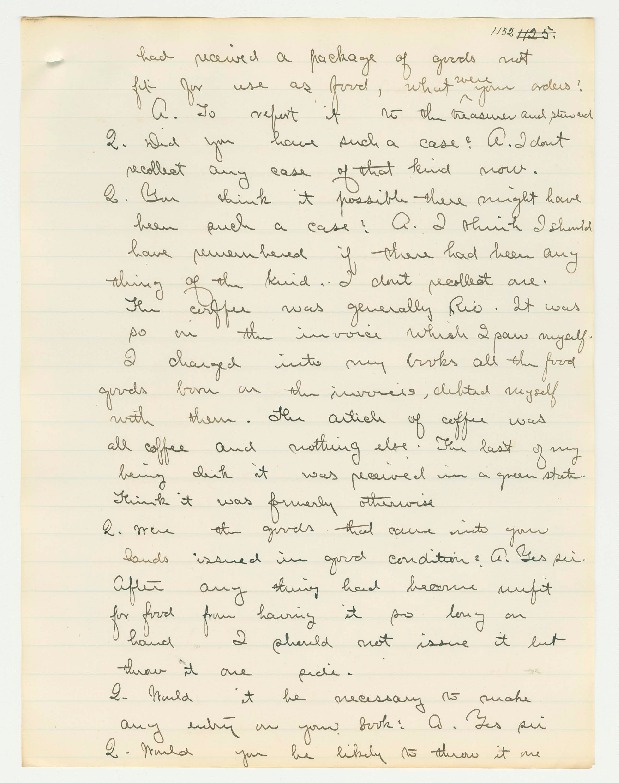 1132 1125.
had received a package of goods not
fit for use as food, what were your orders?
A. To report it to the treasurer and steward
Q. Did you have such a case? A. I dont
recollect any case of that kind now.
Q. You think it possible there might have
been such a case? A. I think I should
have remembered if there had been any
thing of the kind. I dont recollect one.
The coffee was generally Rio. It was
so on the invoice which I saw myself.
I charged into my books all the food
goods born on the invoices, debted myself
with them. The article of coffee was
all coffee and nothing else. The last of my
being clerk it was received in a green state.
Think it was formerly otherwise
Q. Were the goods that came into your
hands issued in good condition? A. Yes sir.
After any thing had become unfit
for food from having it so long on
hand I should not issue it but
throw it one side.
Q. Would it be necessary to make
any entry on your book? A. Yes sir
Q. Would you be likely to throw it one